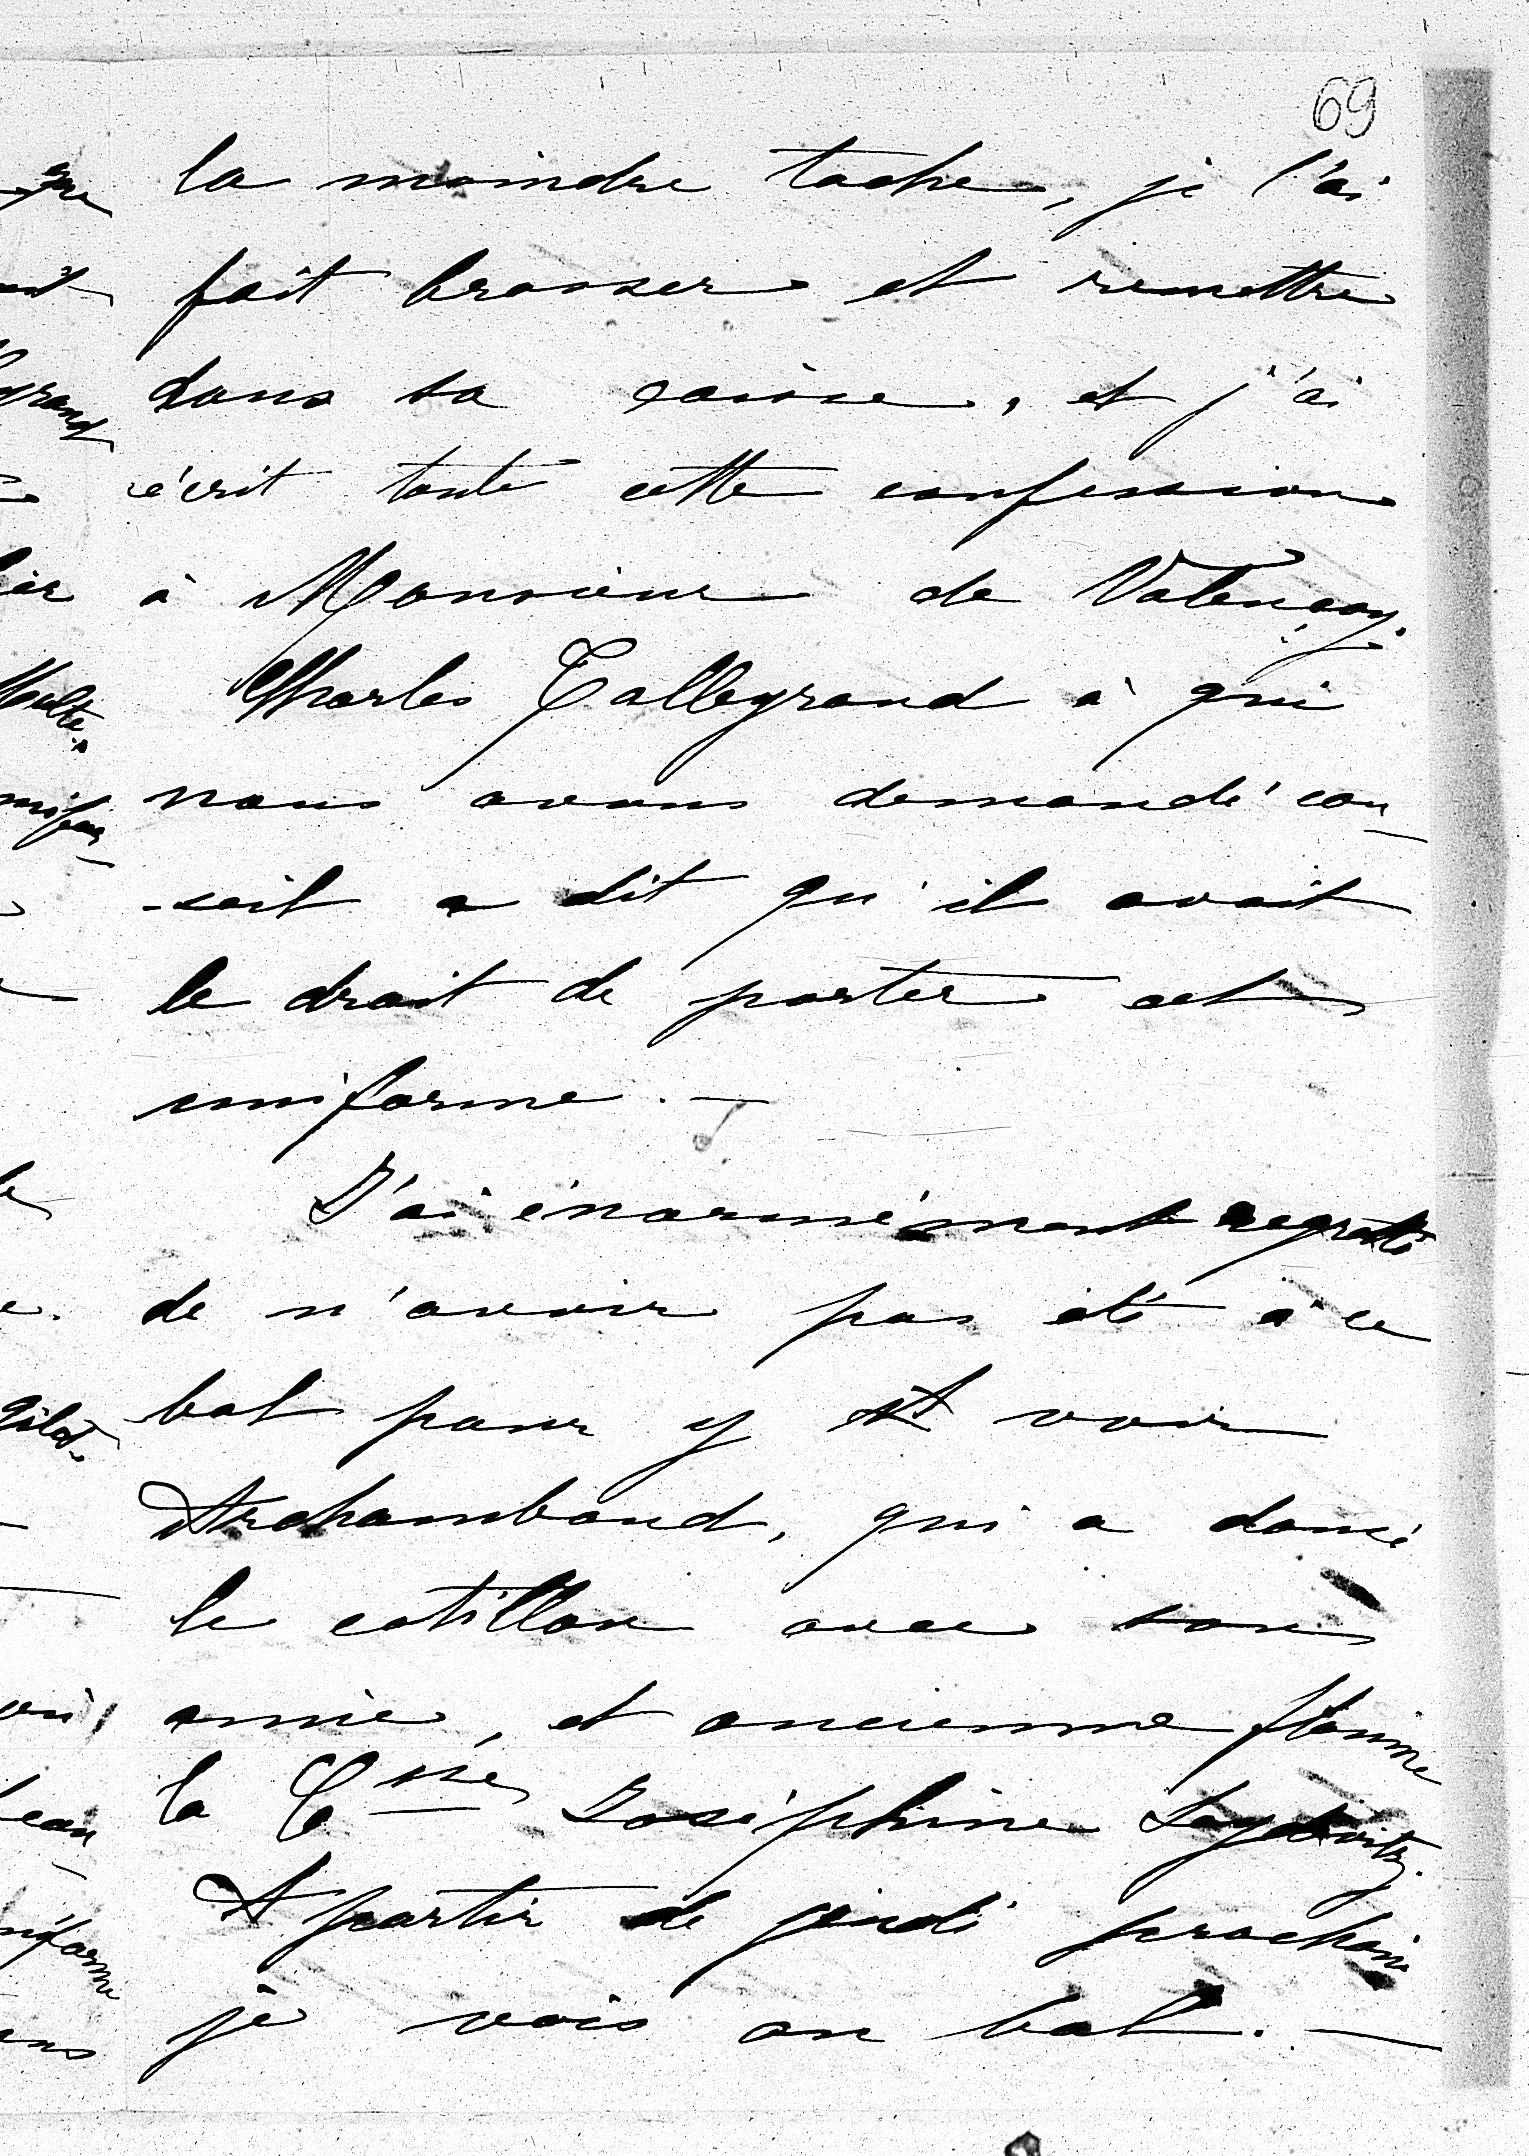 69
la moindre tache, je l'ai
fait brosser et remettre
dans sa caisse, et j'ai
écrit toute cette confession
à Monsieur de Valençay.
Charles Talleyrand à qui
nous avons demandé con_
-seil a dit qu'il avait
le droit de porter cet
uniforme. —
J'ai énormément regretté
de n'avoir pas été à ce
bal pour y voir
Archambaud, qui a dansé
le cotillon avec son
amie, et ancienne flamme
la Csse Joséphine
A partir de jeudi prochain
je vais au bal. —